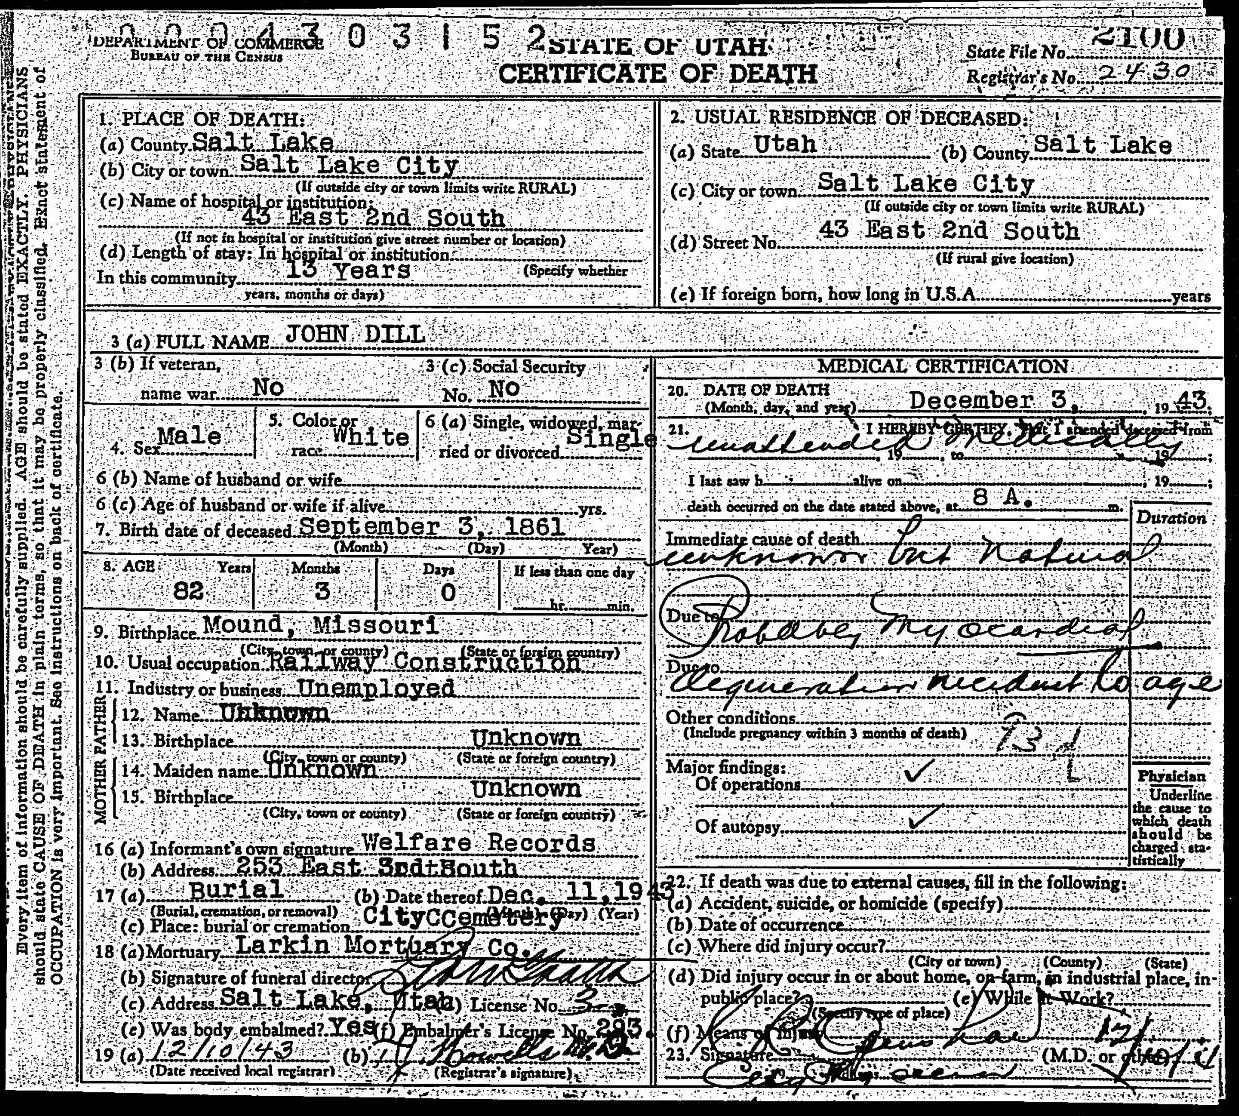 000430315 2
DEPARTMENT OF COMMERCE
BUREAU OF THE CENSUS
STATE OF UTAH
CERTIFICATE OF DEATH
State File No. 2100
Registrar's No. 2430
Every item of information should be carefully supplied. AGE should be stated EXACTLY. PHYSICIANS
should state CAUSE OF DEATH in plain terms, so that it may be properly classified. Exact statement of
OCCUPATION is very important. See instructions on back of certificate.
1. PLACE OF DEATH:
(a) County Salt Lake
(b) City or town Salt Lake City
(If outside city or town limits write RURAL)
(c) Name of hospital or institution:
43 East 2nd South
(If not in hospital or institution give street number or location)
(d) Length of stay: In hospital or institution
In this community 13 Years (Specify whether
years, months or days)
2. USUAL RESIDENCE OF DECEASED:
(a) State Utah (b) County Salt Lake
(c) City or town Salt Lake City
(If outside city or town limits write RURAL)
(d) Street No. 43 East 2nd South
(If rural give location)
(e) If foreign born, how long in U.S.A. years
3 (a) FULL NAME JOHN DILL
3 (b) If veteran,
name war No
3 (c) Social Security
No. No
4. Sex Male
5. Color or
race White
6 (a) Single, widowed, mar-
ried or divorced Single
6 (b) Name of husband or wife
6 (c) Age of husband or wife if alive yrs.
7. Birth date of deceased September 3, 1861
(Month) (Day) Year)
8. AGE Years Months Days If less than one day
82 3 0 hr. min.
9. Birthplace Mound, Missouri
(City, town, or county) (State or foreign country)
10. Usual occupation Railway Construction
11. Industry or business Unemployed
FATHER
12. Name Unknown
13. Birthplace Unknown
(City, town or county) (State or foreign country)
MOTHER
14. Maiden name Unknown
15. Birthplace Unknown
(City, town or county) (State or foreign country)
16 (a) Informant's own signature Welfare Records
(b) Address 253 East South
17 (a) Burial (b) Date thereof Dec. 11, 1943
(Burial, cremation, or removal) (Month) (Day) (Year)
(c) Place: burial or cremation City Cemetery
18 (a) Mortuary Larkin Mortuary Co.
(b) Signature of funeral director
(c) Address Salt Lake, Utah (d) License No. 3
(e) Was body embalmed? Yes (f) Embalmer's License No. 293.
19 (a) 12/10/43 (b)
(Date received local registrar) (Registrar's signature)
MEDICAL CERTIFICATION
20. DATE OF DEATH
(Month, day, and year) December 3, 1943;
21. I HEREBY CERTIFY, that I attended deceased from
unattended medically , 19 to , 19 ;
I last saw h alive on , 19 ;
death occurred on the date stated above, at 8 A. m.
Duration
Immediate cause of death
unknown but natural
Due to Probably Myocardial
Due to
degeneration incident to age
Other conditions
(Include pregnancy within 3 months of death) 93 d
Major findings:
Of operations ✓
Of autopsy ✓
Physician
Underline
the cause to
which death
should be
charged sta-
tistically
22. If death was due to external causes, fill in the following:
(a) Accident, suicide, or homicide (specify)
(b) Date of occurrence
(c) Where did injury occur?
(City or town) (County) (State)
(d) Did injury occur in or about home, on farm, in industrial place, in-
public place? (e) While at Work?
(Specify type of place)
(f) Means of Injury
23. Signature (M.D. or other)